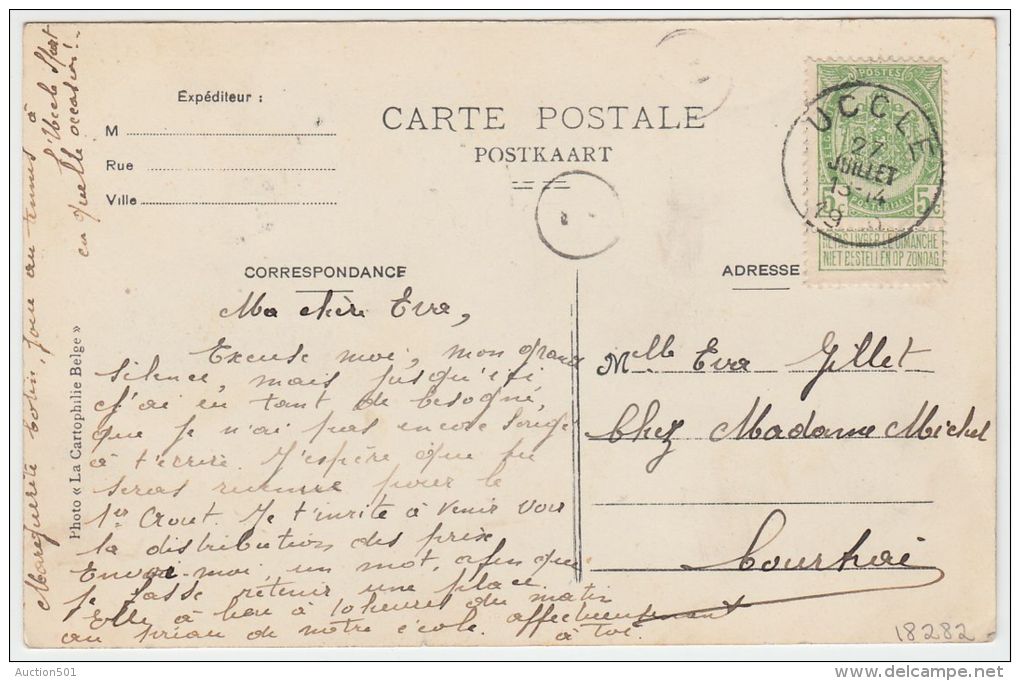 Expéditeur :
M
Rue
Ville
CARTE POSTALE
POSTKAART
UCCLE
27
JUILLET
13-14
19
POSTES
5 5
POSTERIJEN
NE PAS LIVRER LE DIMANCHE
NIET BESTELLEN OP ZONDAG
CORRESPONDANCE
ADRESSE
Ma chère Eva,
Excuse moi, mon grand
silence, mais jusqu'ici,
j'ai eu tant de besogne,
que je n'ai pas encore songé
à t'écrire. J'espère que tu
seras revenue pour le
1er Août. Je t'invite à venir voir
la distribution des prix
Envoie-moi un mot, afin que
je fasse retenir une place
Elle a lieu à 10 heures du matin
au préau de notre école. affectueusement
à toi.
Marguerite, joue au tennis à
l'Uccle Sport
en quelle occasion!
Mlle Eva Gillet
Chez Madame Michel
Photo « La Cartophilie Belge »
18282
Auction501
www.delcampe.net